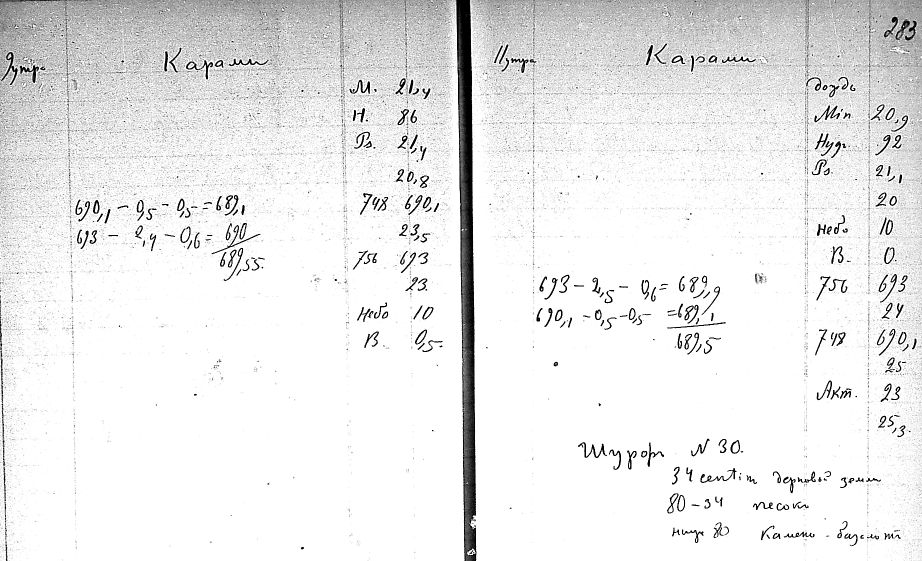 9 утра Карами
М. 21,4
Н. 86
Ps. 21,4
20,8
690,1 - 0,5 - 0,5 = 689,1 748 690,1
693 - 2,4 - 0,6 = 690 23,5
689,55. 756 693
23.
Небо 10
В. 0,5.
283
11 утра Карами
дождь
Min 20,9
Нудг. 92
Ps. 21,1
20
Небо 10
В. 0.
693 - 2,5 - 0,6 = 689,9 756 693
690,1 - 0,5 - 0,5 = 689,1 24
689,5 748 690,1
25
Акт. 23
25,3.
Шурф N 30.
34 centim дерновой земли
80-34 песок
ниже 80 Камень - базальт